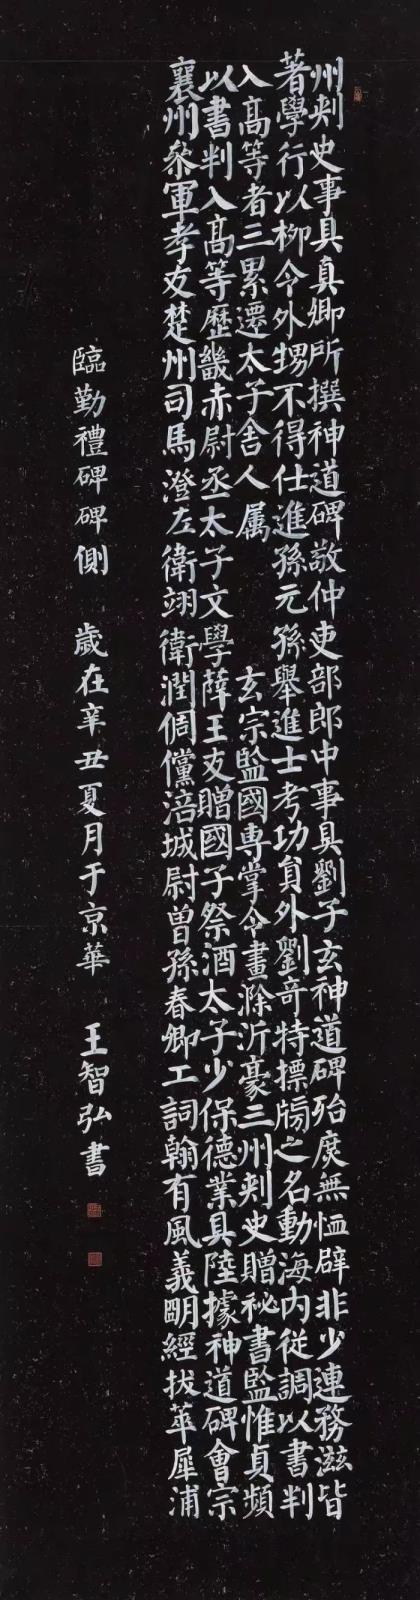 州刾史事具真卿所撰神道碑敬仲吏部郎中事具劉子玄神道碑殆庻無恤辟非少連務滋皆
著學行以柳令外甥不得仕進孫元孫舉進士考功員外劉奇特摽牓之名動海内従調以書判
入高等者三累遷太子舍人属 玄宗監國専掌令畫滁沂豪三州刾史贈祕書監惟貞頻
以書判入高等歷畿赤尉丞太子文學薛王友贈國子祭酒太子少保德業具陸據神道碑會宗
襄州叅軍孝友楚州司馬澄左衛翊衛潤倜儻涪城尉曽孫春卿工詞翰有風義明經拔萃犀浦
臨勤禮碑碑側 歲在辛丑夏月于京華 王智弘書